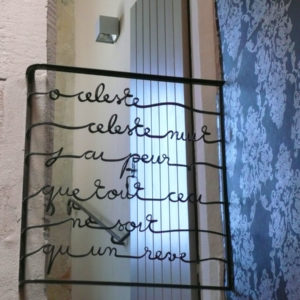 o celeste
celeste nuit
j ai peur
que tout ceci
ne soit
qu un reve